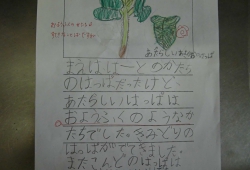 あたらしい
はっぱ
まえははーとのかたち
のはっぱだったけど、
あたらしいはっぱは
おようふくのようなか
たちでした。きみどりの
はっぱがでてきました。
またこんどのはっぱは